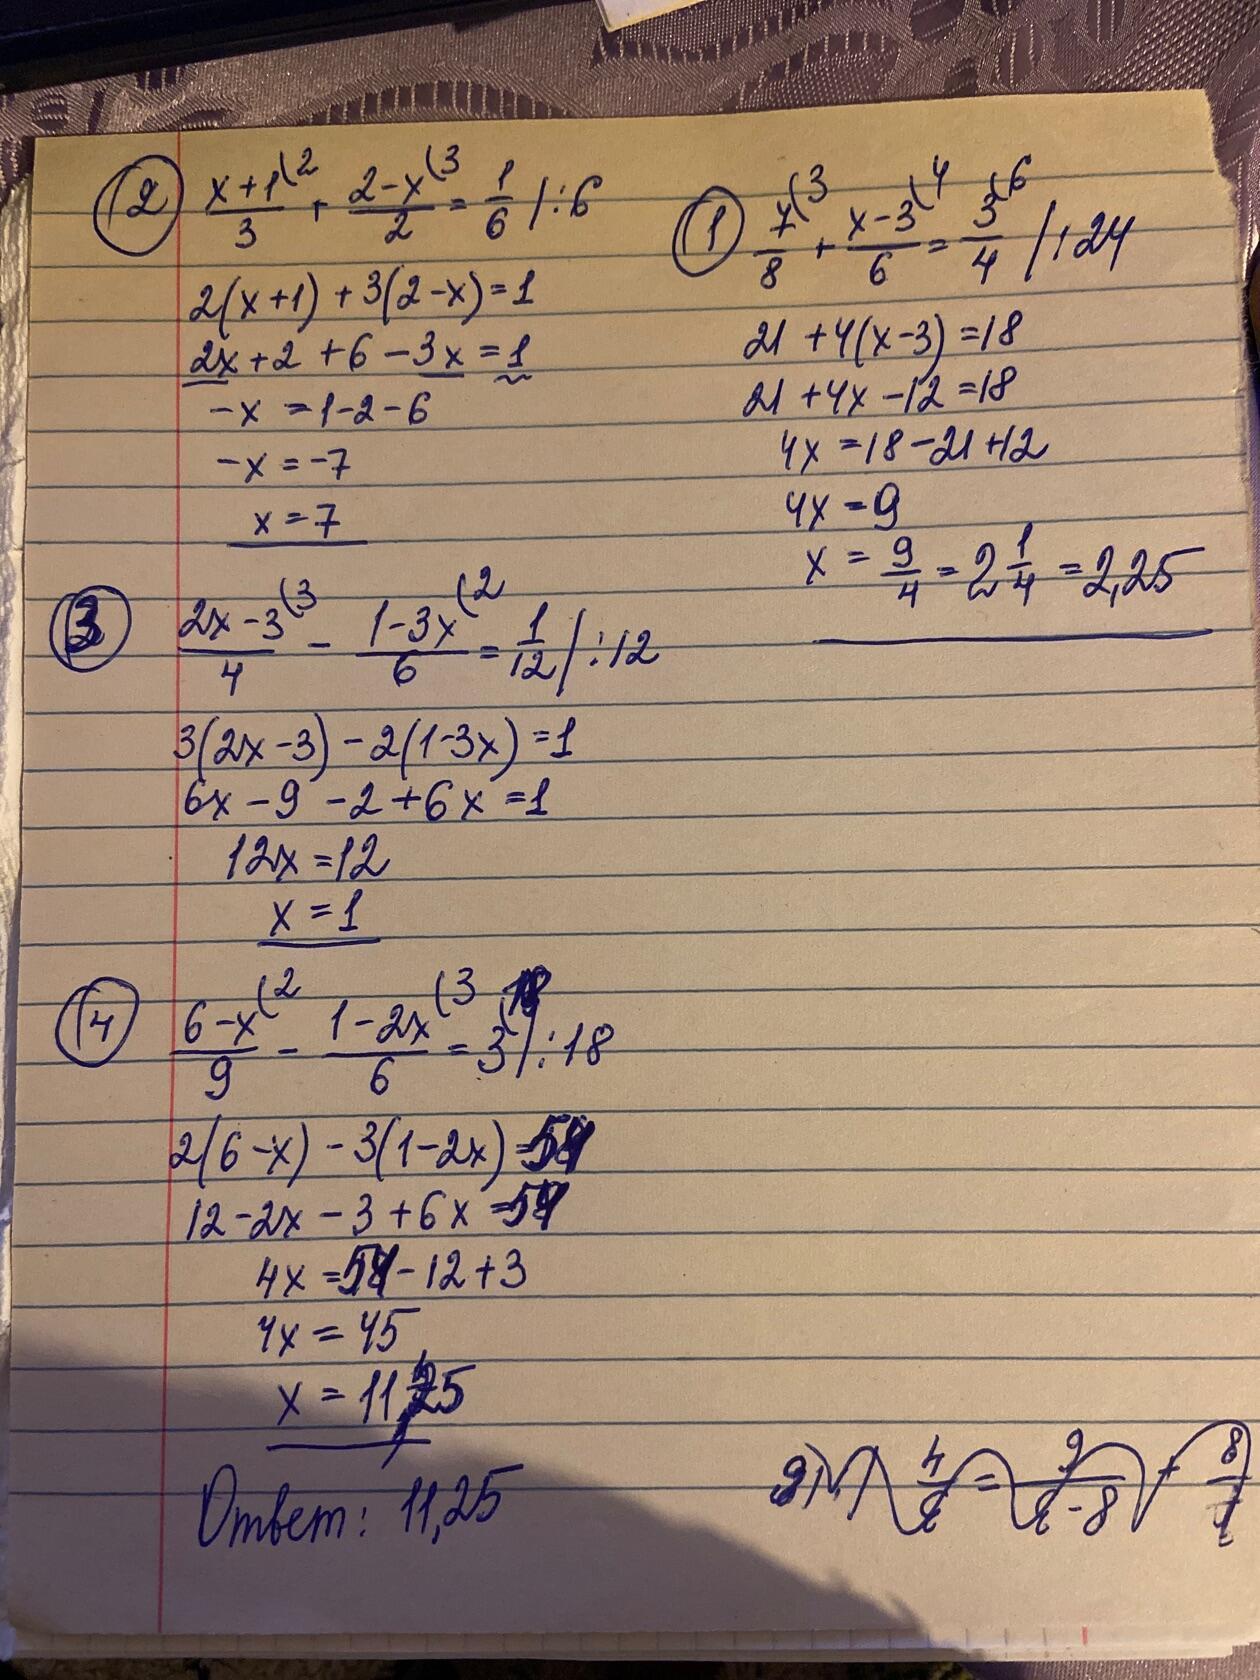 ② (x+1)/3 ⁽² + (2-x)/2 ⁽³ = 1/6 /:6
2(x+1)+3(2-x)=1
2x+2+6-3x=1
-x=1-2-6
-x=-7
x=7
① 7/8 ⁽³ + (x-3)/6 ⁽⁴ = 3/4 ⁽⁶ /:24
21+4(x-3)=18
21+4x-12=18
4x=18-21+12
4x=9
x=9/4=2 1/4=2,25
③ (2x-3)/4 ⁽³ - (1-3x)/6 ⁽² = 1/12 /:12
3(2x-3)-2(1-3x)=1
6x-9-2+6x=1
12x=12
x=1
④ (6-x)/9 ⁽² - (1-2x)/6 ⁽³ = 3 ⁽¹⁸ /:18
2(6-x)-3(1-2x)=54
12-2x-3+6x=54
4x=54-12+3
4x=45
x=11,25
Ответ: 11,25